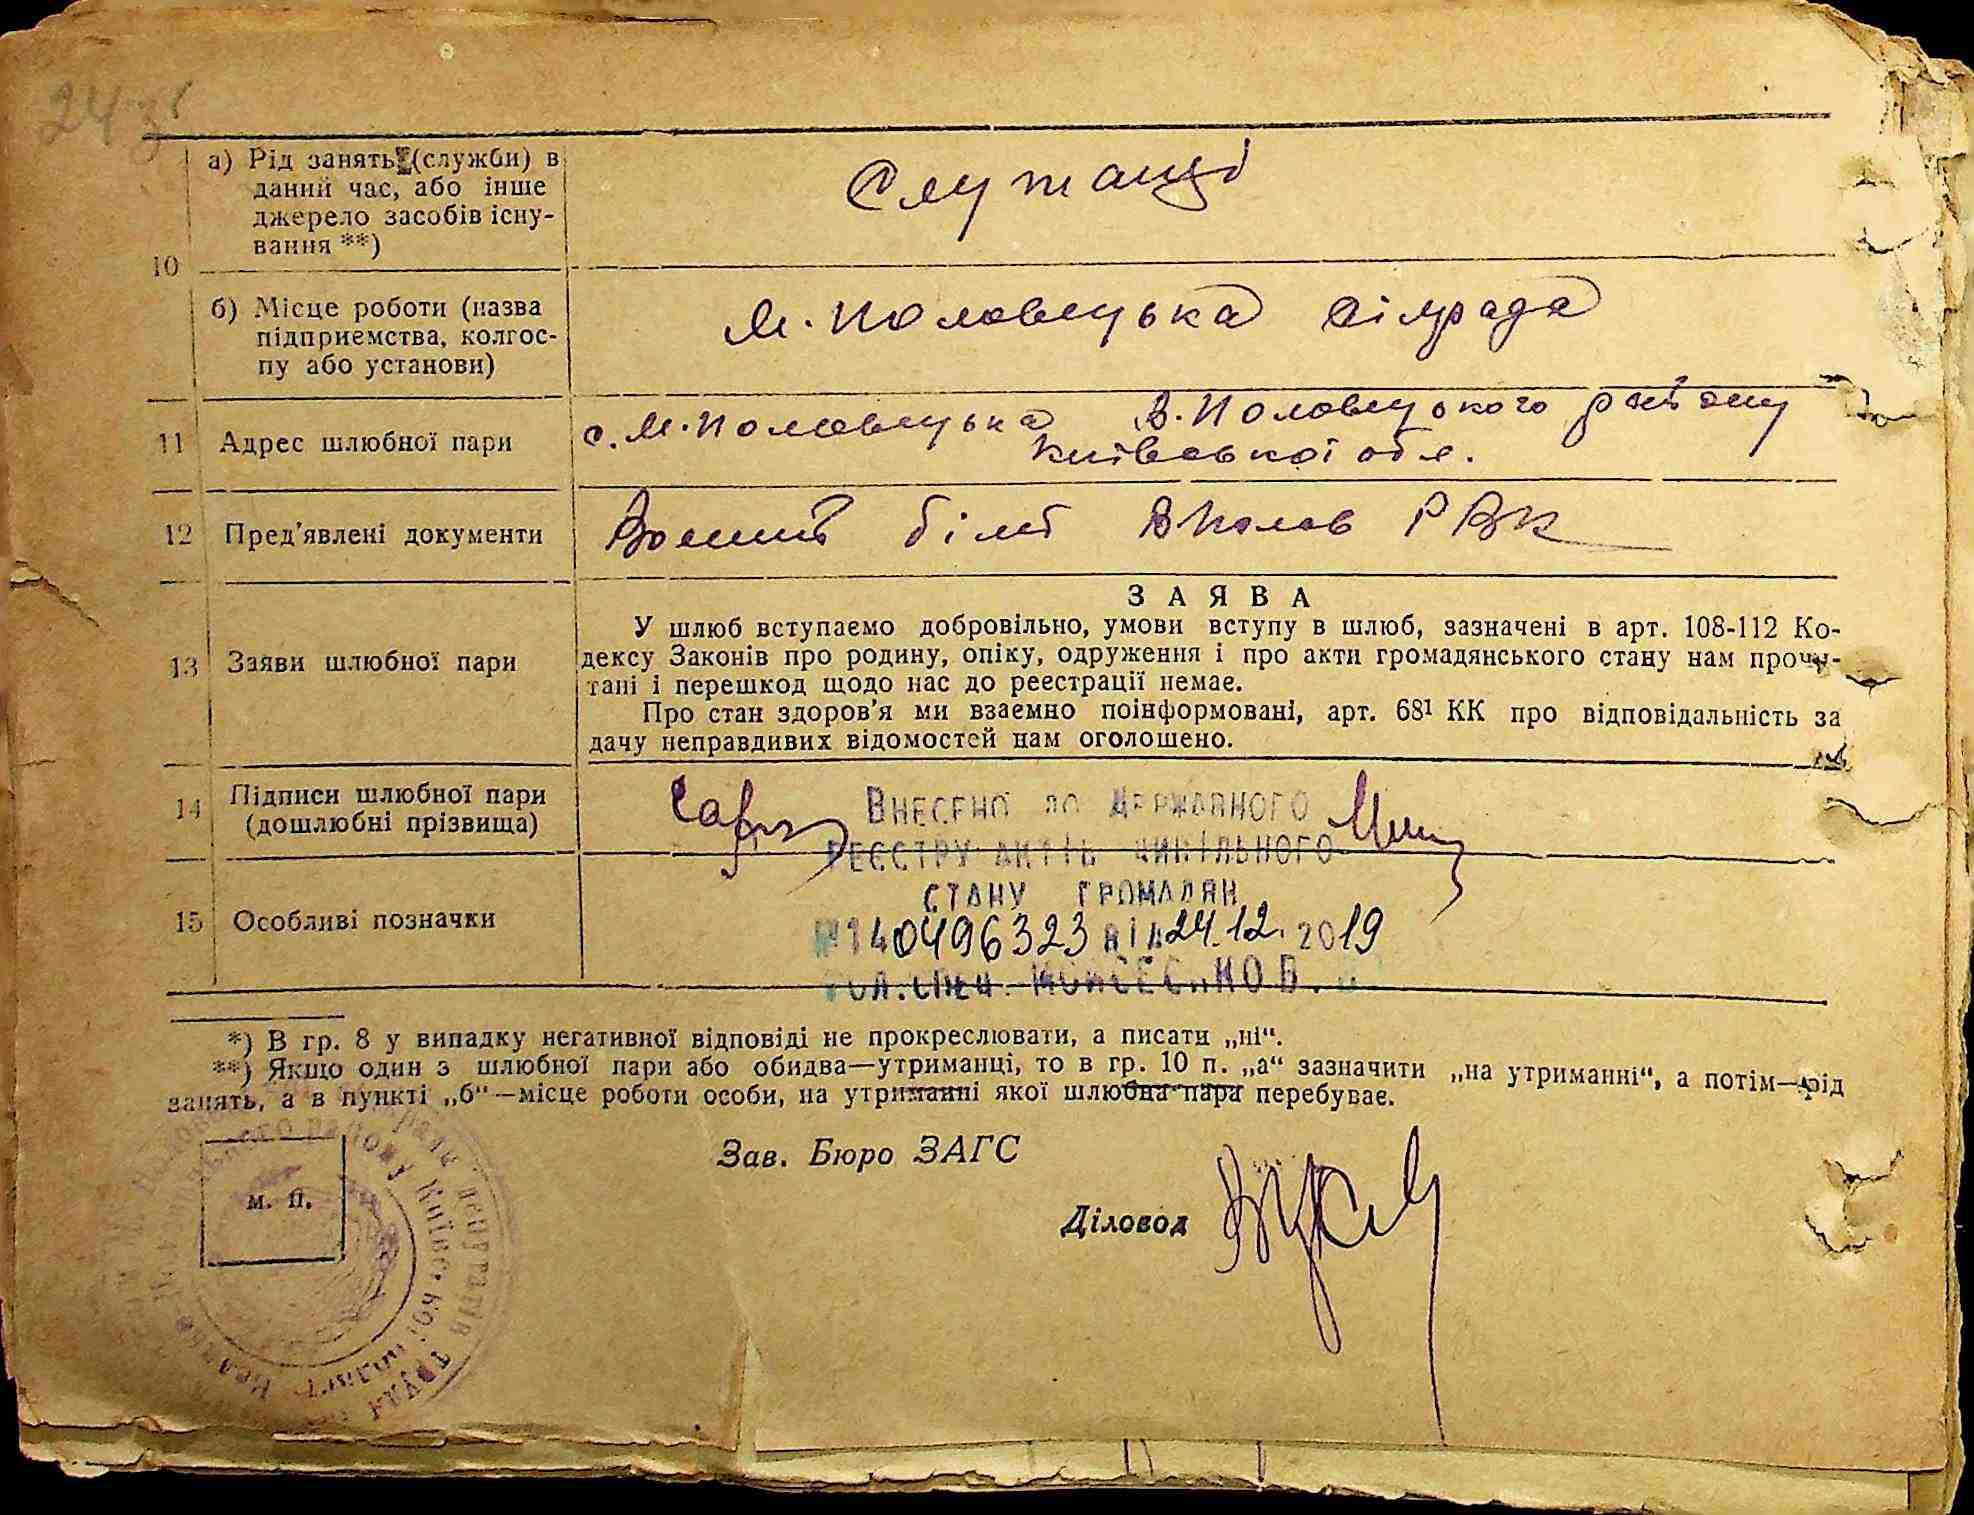 24
10
а) Рід занять (служби) в
даний час, або інше
джерело засобів існу-
вання **)
Служащі
б) Місце роботи (назва
підприємства, колгос-
пу або установи)
М. Половецька сілрада
11 Адрес шлюбної пари
с. М. Половецька В. Половецького району
Київської обл.
12 Пред'явлені документи
Воєний біл В Полов РВК
13 Заяви шлюбної пари
ЗАЯВА
У шлюб вступаємо добровільно, умови вступу в шлюб, зазначені в арт. 108-112 Ко-
дексу Законів про родину, опіку, одруження і про акти громадянського стану нам прочи-
тані і перешкод щодо нас до реєстрації немає.
Про стан здоров'я ми взаємно поінформовані, арт. 68¹ КК про відповідальність за
дачу неправдивих відомостей нам оголошено.
14 Підписи шлюбної пари
(дошлюбні прізвища)
ВНЕСЕНО ДО ДЕРЖАВНОГО
РЕЄСТРУ АКТІВ ЦИВІЛЬНОГО
СТАНУ ГРОМАДЯН
15 Особливі позначки
№140496323 від 24.12.2019
*) В гр. 8 у випадку негативної відповіді не прокреслювати, а писати „ні“.
**) Якщо один з шлюбної пари або обидва—утриманці, то в гр. 10 п. „а“ зазначити „на утриманні“, а потім—рід
занять, а в пункті „б“—місце роботи особи, на утриманні якої шлюбна пара перебуває.
Зав. Бюро ЗАГС
м. п.
Діловод